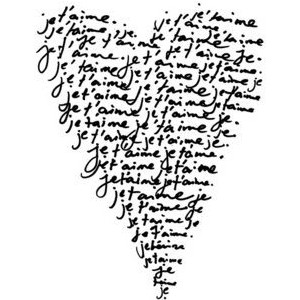 je t'aime. je t'aime
je t'aime. je. je t'aime. je t'aime.
je t'aime. je t'aime. je t'aime.
je t'aime. je t'aime. je t'aime je
je t'aime je t'aime. je t'aime.
je t'aime. je t'aime. je t'aime
je t'aime. je t'aime. je t'aime.
je t'aime je t'aime. je
je t'aime. je t'aime. je.
je t'aime je t'aime.
je t'aime. je t'aime.
je t'aime je t'aime.
je t'aime je
je t'aime. je
je t'aime. je
je t'aime.
je t'aime
je t'aime
je
t'aime
je.